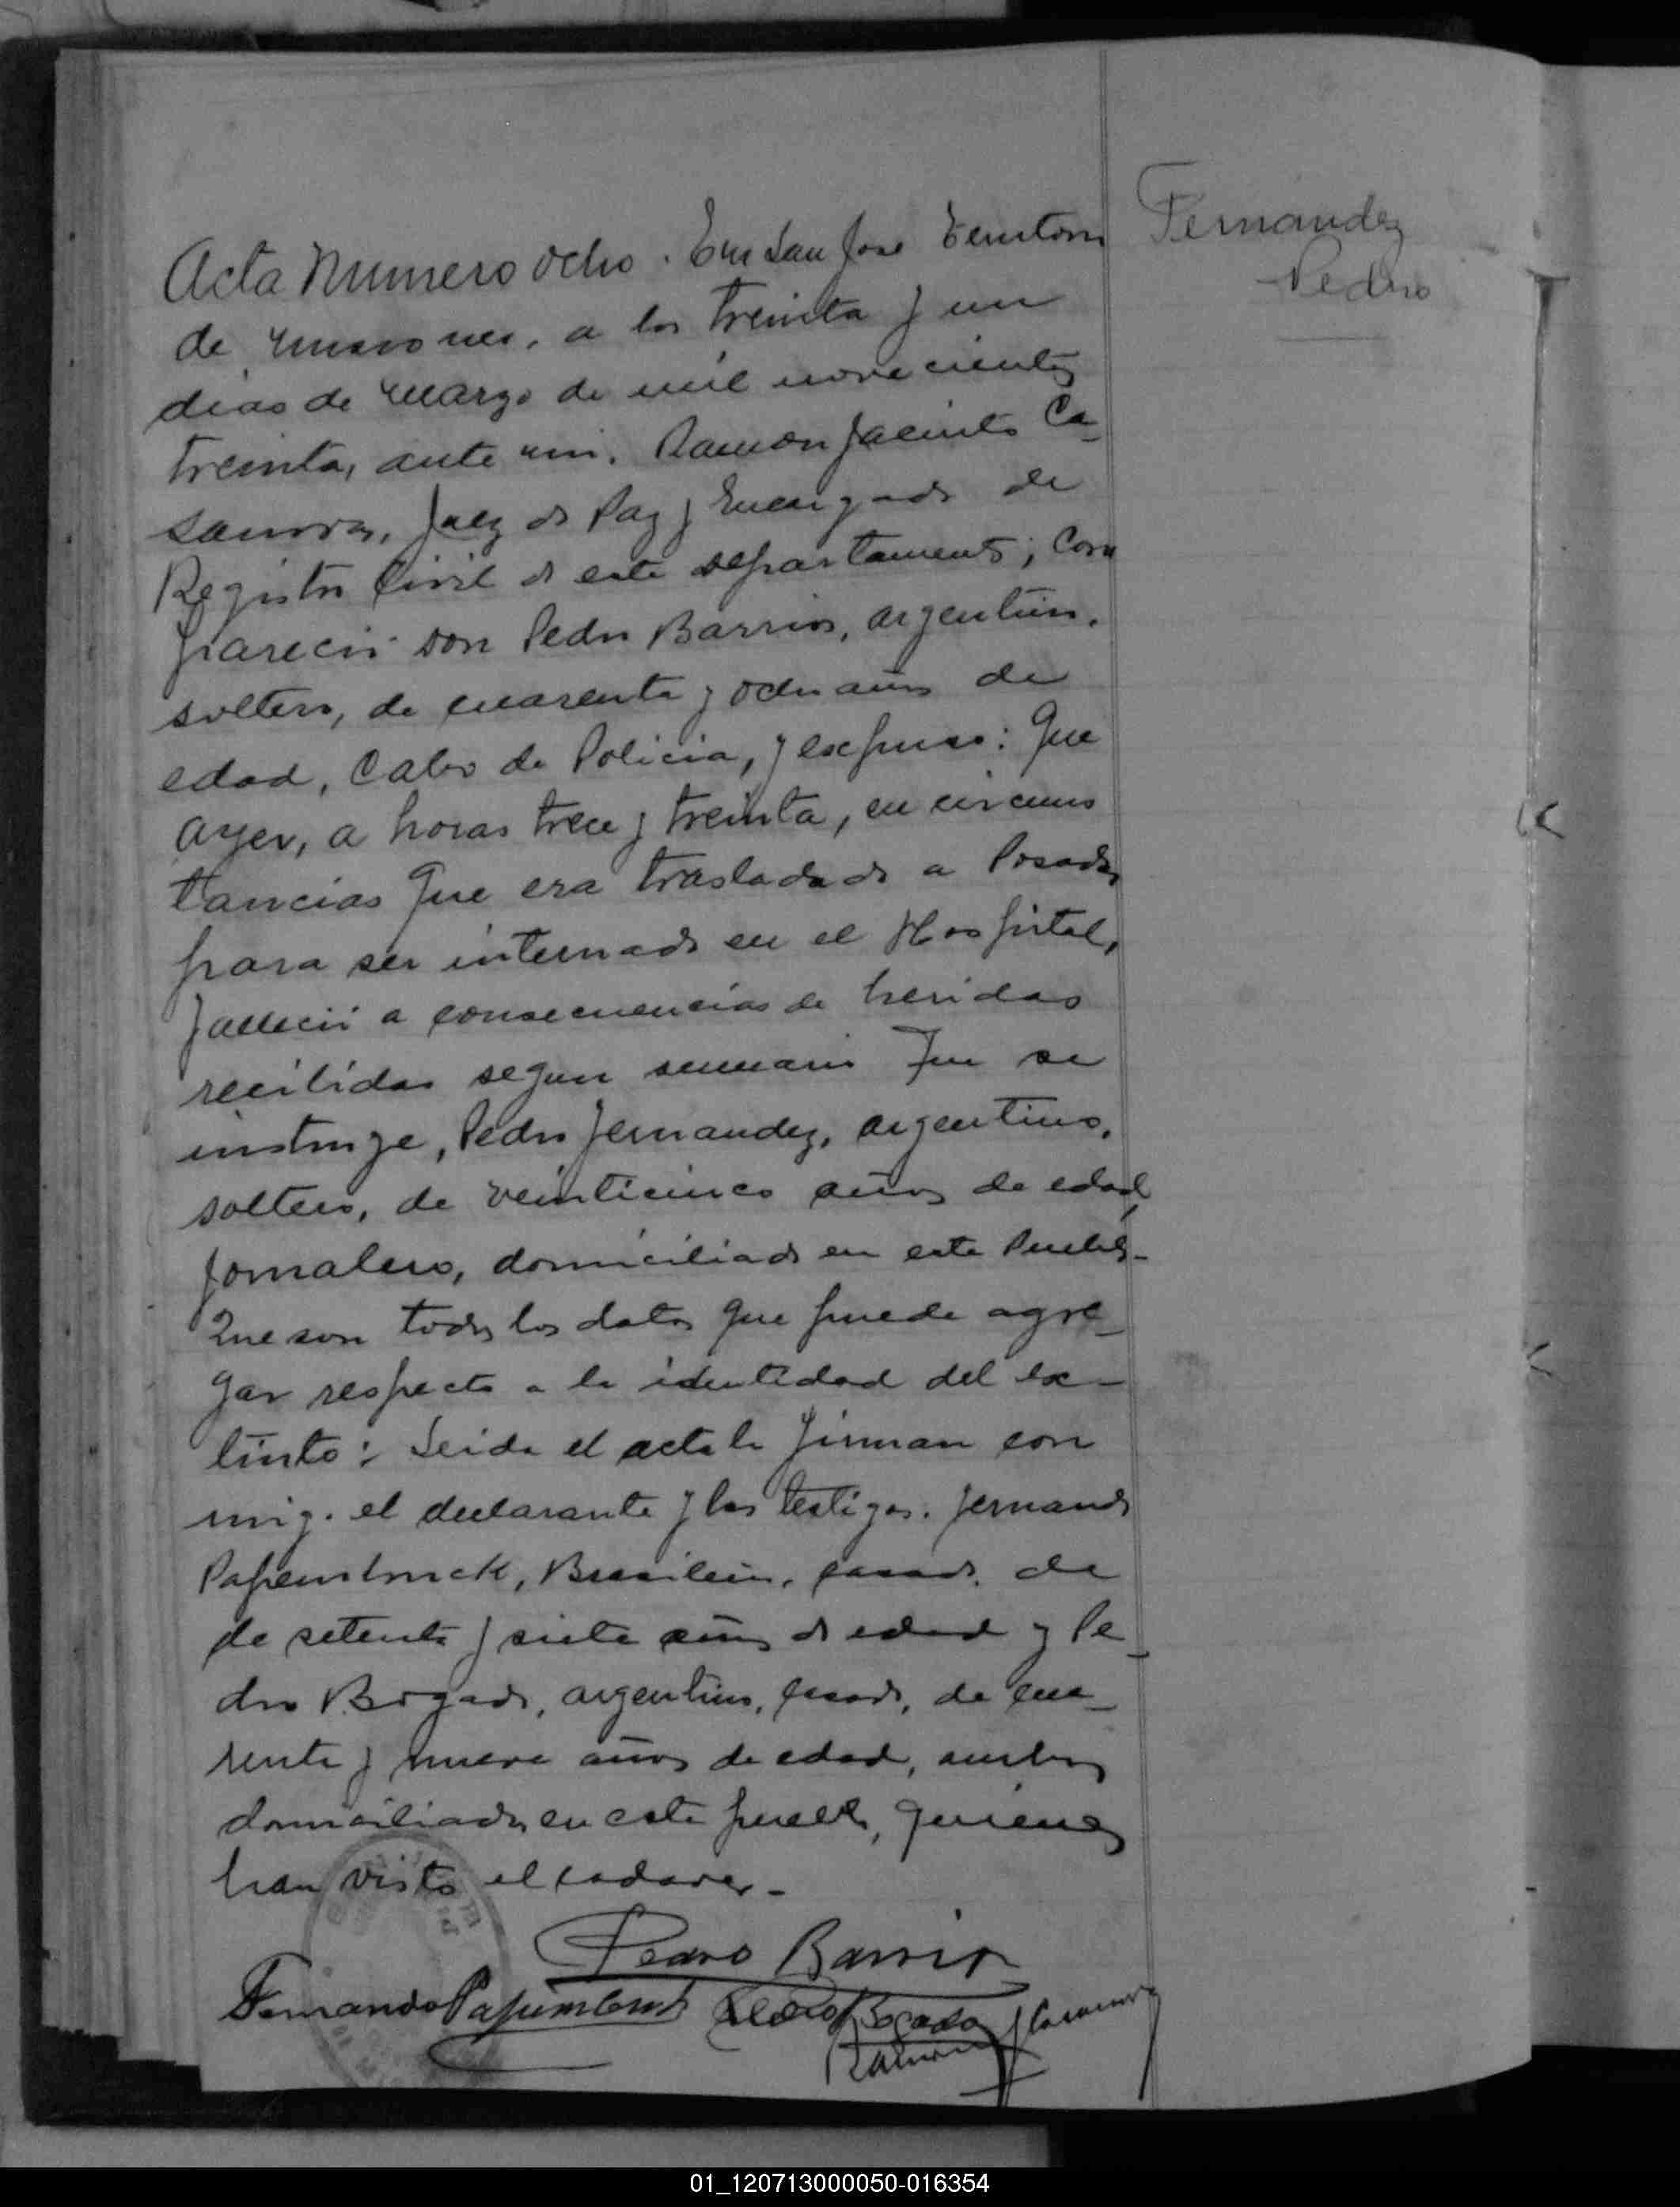 Fernandez
Pedro
Acta Numero ocho. En San Jose Territorio
de Misiones, a los treinta y un
dias de Marzo de mil novecientos
treinta, ante mi, Ramon Jacinto Ca-
sanova, Juez de Paz y Encargado de
Registro Civil de este departamento; com
pareció don Pedro Barrios, argentino,
soltero, de cuarenta y ocho años de
edad, Cabo de Policia, y expuso: Que
ayer, a horas trece y treinta, en circuns
tancias que era trasladado a Posadas
para ser internado en el Hospital,
falleció a consecuencias de heridas
recibidas segun sumario que se
instruye, Pedro Fernandez, argentino,
soltero, de veinticinco años de edad,
jornalero, domiciliado en este Pueblo-
Que son todos los datos que puede agre-
gar respecto a la identidad del ex-
tinto: Leida el acta la firman con
migo el declarante y los testigos. Fernando
Papenbruck, Brasilero, casado, de
de setenta y siete años de edad y Pe-
dro Bogado, argentino, casado, de cua-
renta y nueve años de edad, ambos
domiciliados en este pueblo, quienes
han visto el cadaver.-
Pedro Barrios
Fernando Pedro Bogado
Ramon J Casanova
01_120713000050-016354